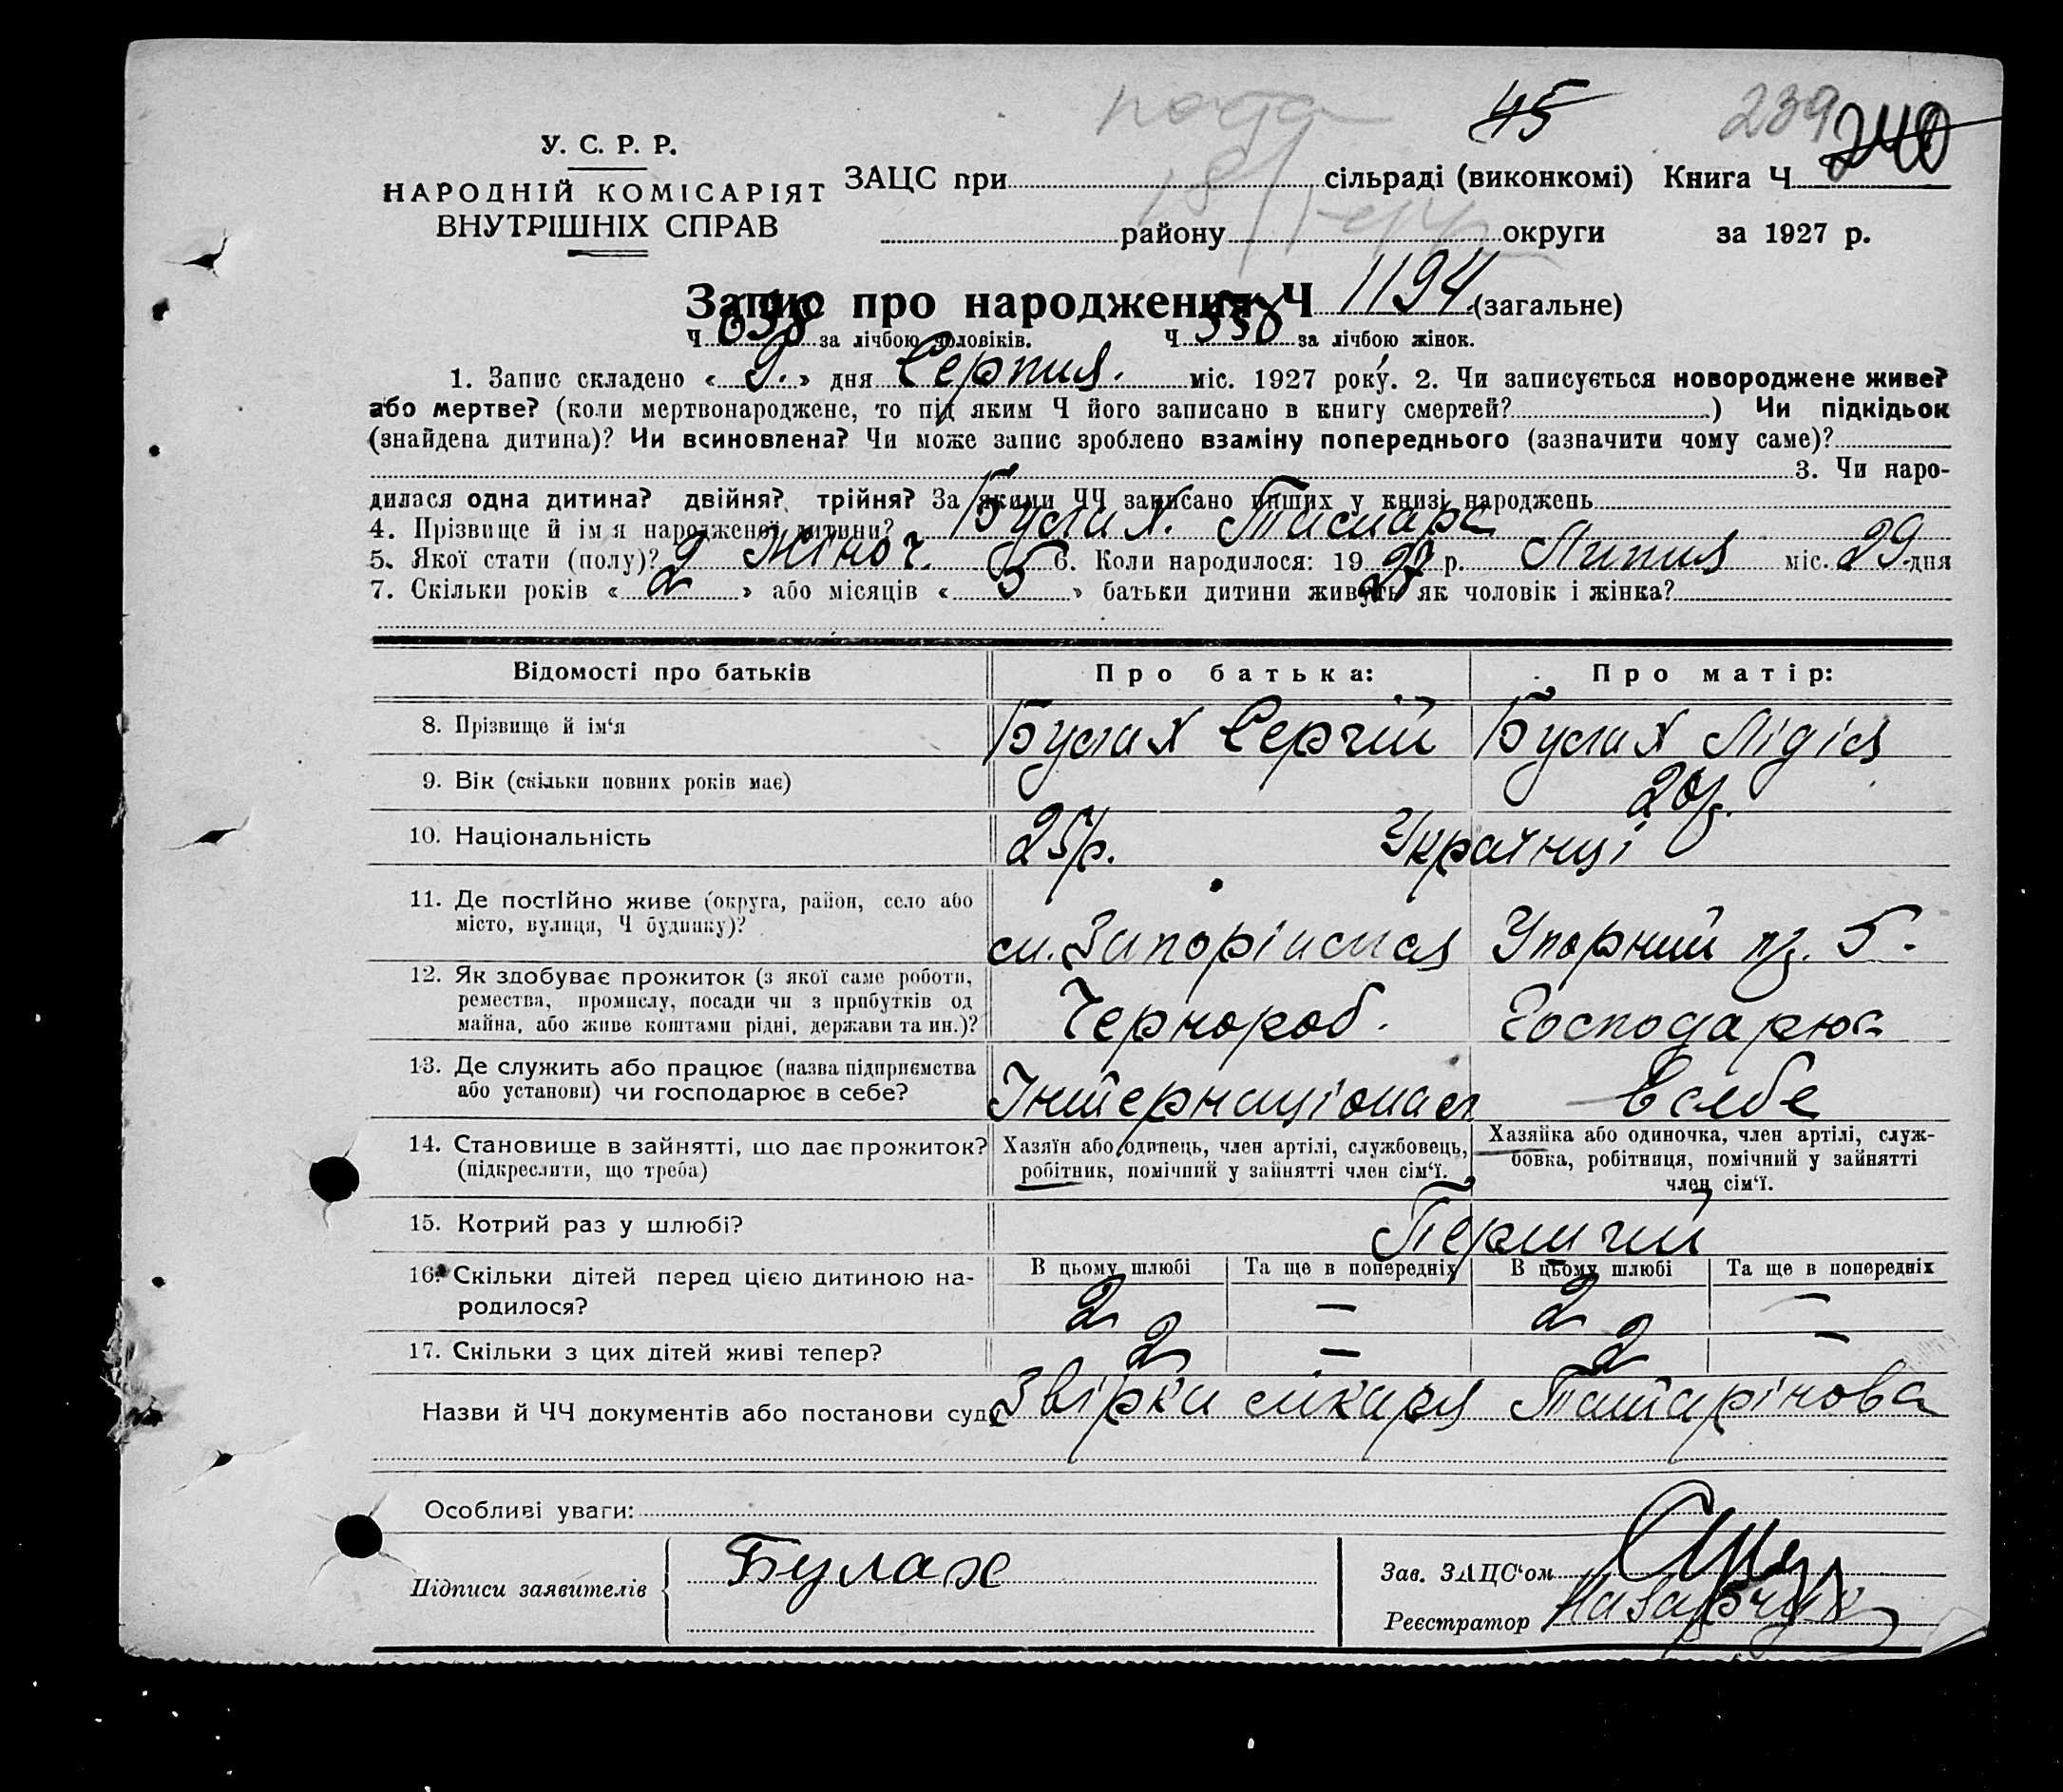 45
239 240
У. С. Р. Р.
НАРОДНІЙ КОМІСАРІЯТ
ВНУТРІШНІХ СПРАВ
ЗАЦС при сільраді (виконкомі) Книга Ч
району округи за 1927 р.
Запис про народження Ч 1194 (загальне)
Ч 638 за лічбою чоловіків. Ч 556 за лічбою жінок.
1. Запис складено « 9. » дня Серпня. міс. 1927 року. 2. Чи записується новороджене живе?
або мертве? (коли мертвонароджене, то під яким Ч його записано в книгу смертей? ) Чи підкідьок
(знайдена дитина)? Чи всиновлена? Чи може запис зроблено взаміну попереднього (зазначити чому саме)?
3. Чи наро-
дилася одна дитина? двійня? трійня? За якими ЧЧ записано инших у книзі народжень
4. Прізвище й імя народженої дитини? Булах. Тамара
5. Якої стати (полу)? 2 Жіноч. 6. Коли народилося: 19 27 р. Липня міс. 29 дня
7. Скільки років « 2 » або місяців « 5 » батьки дитини живуть як чоловік і жінка?
Відомості про батьків Про батька: Про матір:
8. Прізвище й ім‘я Булах Сергій Булах Лідія
9. Вік (скільки повних років має) 25р. 20р.
10. Національність Українці
11. Де постійно живе (округа, район, село або
місто, вулиця, Ч будинку)? м. Запоріжжя Упорний пр. 5.
12. Як здобуває прожиток (з якої саме роботи,
ремества, промислу, посади чи з прибутків од
майна, або живе коштами рідні, держави та ин.)? Чернороб. Господарює
13. Де служить або працює (назва підприємства
або установи) чи господарює в себе? Інтернаціонал в себе
14. Становище в зайнятті, що дає прожиток?
(підкреслити, що треба)
Хазяїн або одинець, член артілі, службовець,
робітник, помічний у зайнятті член сім‘ї.
Хазяйка або одиночка, член артілі, служ-
бовка, робітниця, помічний у зайнятті
член сім‘ї.
15. Котрий раз у шлюбі? Перший
16. Скільки дітей перед цією дитиною на-
родилося?
В цьому шлюбі Та ще в попередніх В цьому шлюбі Та ще в попередніх
2 — 2 —
17. Скільки з цих дітей живі тепер? 2 — 2 —
Назви й ЧЧ документів або постанови суд. Звірка лікаря Татарінова
Особливі уваги:
Підписи заявителів Булах
Зав. ЗАЦС‘ом
Реєстратор Назарчук